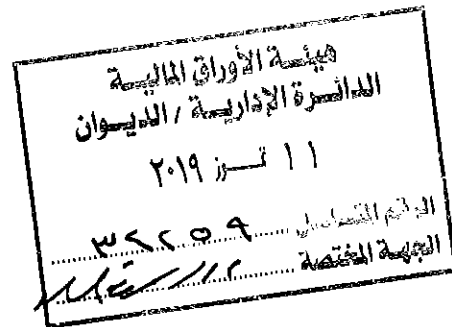 هيئة الأوراق المالية
الدائرة الإدارية / الديوان
١١ تموز ٢٠١٩
الرقم المتسلسل ٣٢٢٥٩
الجهة المختصة